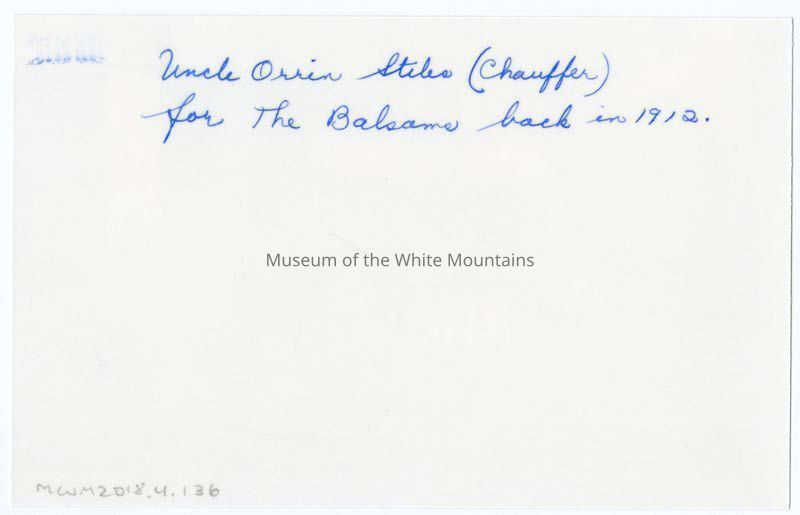 Uncle Orrin Stiles (Chauffer)
for The Balsams back in 1912.
Museum of the White Mountains
MWM2018.4.136